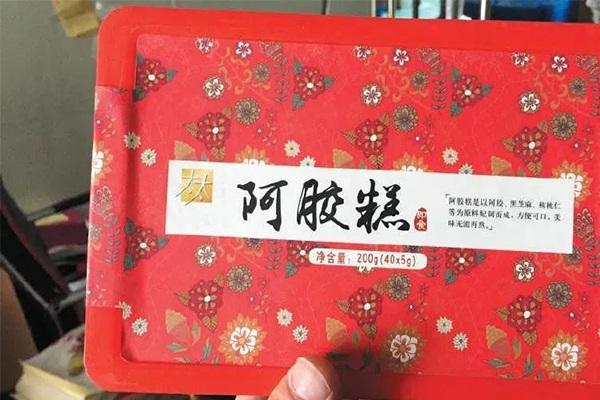 阿胶糕
即食
阿胶糕是以阿胶、黑芝麻、核桃仁
等为原料配制而成，方便可口，美
味无需再熬。
净含量：200g(40x5g)